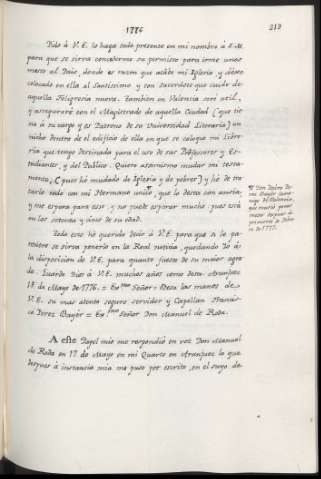 1776
213
Pido à V.E. lo haga todo presente en mi nombre à S.M.
para que se sirva concederme su permiso para irme unos
meses al Pais, donde es razon que acabe mi Iglesia y dexe
colocado en ella al Santissimo y con Sacerdotes que cuide de
aquella Feligresia nueva. Tambien en Valencia sere util,
y asseguraré con el Magistrado de aquella Ciudad (que tie
ne à su cargo y es Patrono de su Universidad Literaria) un
nicho dentro de el edificio de ella en que se coloque mi Libre-
ria que tengo destinada para el uso de sus Professores y Es-
tudiantes, y del Publico. Quiero assimismo mudar mi testa-
mento, (pues hé mudado de Iglesia y de pobres) y hé de tra-
tarlo todo con mi Hermano unico, que lo desea con ansia,
y me espera para esso, y no puede esperar mucho pues está
en los setenta y cinco de su edad.
Don Pedro Pe-
rez Bayer
de Valencia,
que murió
de 1777.
Todo esto hé querido decir à V.E. para que si le pa-
reciere se sirva ponerlo en la Real noticia, quedando Yo à
la disposicion de V.E. para quanto fuesse de su maior agra-
do. Guarde Dios à V.E. muchos años como deseo. Aranjuez
18 de Mayo de 1776. = Exmo Señor = Besa las manos de
V.E. su mas atento seguro servidor y Capellan Francis-
co Perez Bayèr = Exmo Señor Don Manuel de Roda.
A este Papel mio me respondió en voz Don Manuel
de Roda en 19 de Mayo en mi Quarto en Aranjuez lo que
despues à instancia mia me puso por escrito, en el suyo de